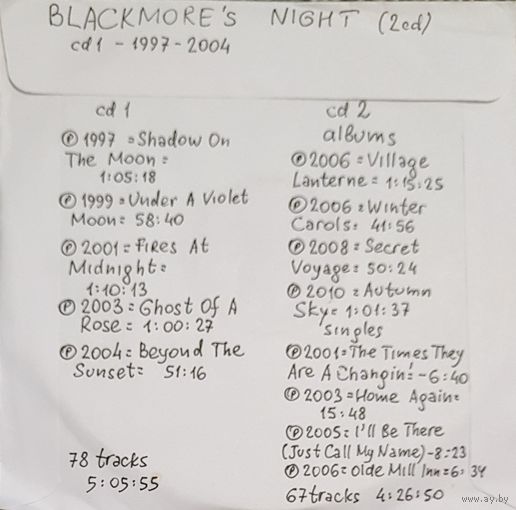 BLACKMORE's NIGHT (2cd)
cd 1 - 1997 - 2004
cd 1
Ⓟ 1997 = Shadow On
The Moon =
1:05:18
Ⓟ 1999 = Under A Violet
Moon = 58:40
Ⓟ 2001 = Fires At
Midnight =
1:10:13
Ⓟ 2003 = Ghost Of A
Rose = 1:00:27
Ⓟ 2004 = Beyond The
Sunset = 51:16
78 tracks
5:05:55
cd 2
albums
Ⓟ 2006 = Village
Lanterne = 1:15:25
Ⓟ 2006 = Winter
Carols = 41:56
Ⓟ 2008 = Secret
Voyage = 50:24
Ⓟ 2010 = Autumn
Sky = 1:01:37
singles
Ⓟ 2001 = The Times They
Are A Changin' - 6:40
Ⓟ 2003 = Home Again =
15:48
Ⓟ 2005 = I'll Be There
(Just Call My Name) - 8:23
Ⓟ 2006 = Olde Mill Inn = 6:34
67 tracks 4:26:50
www.ay.by